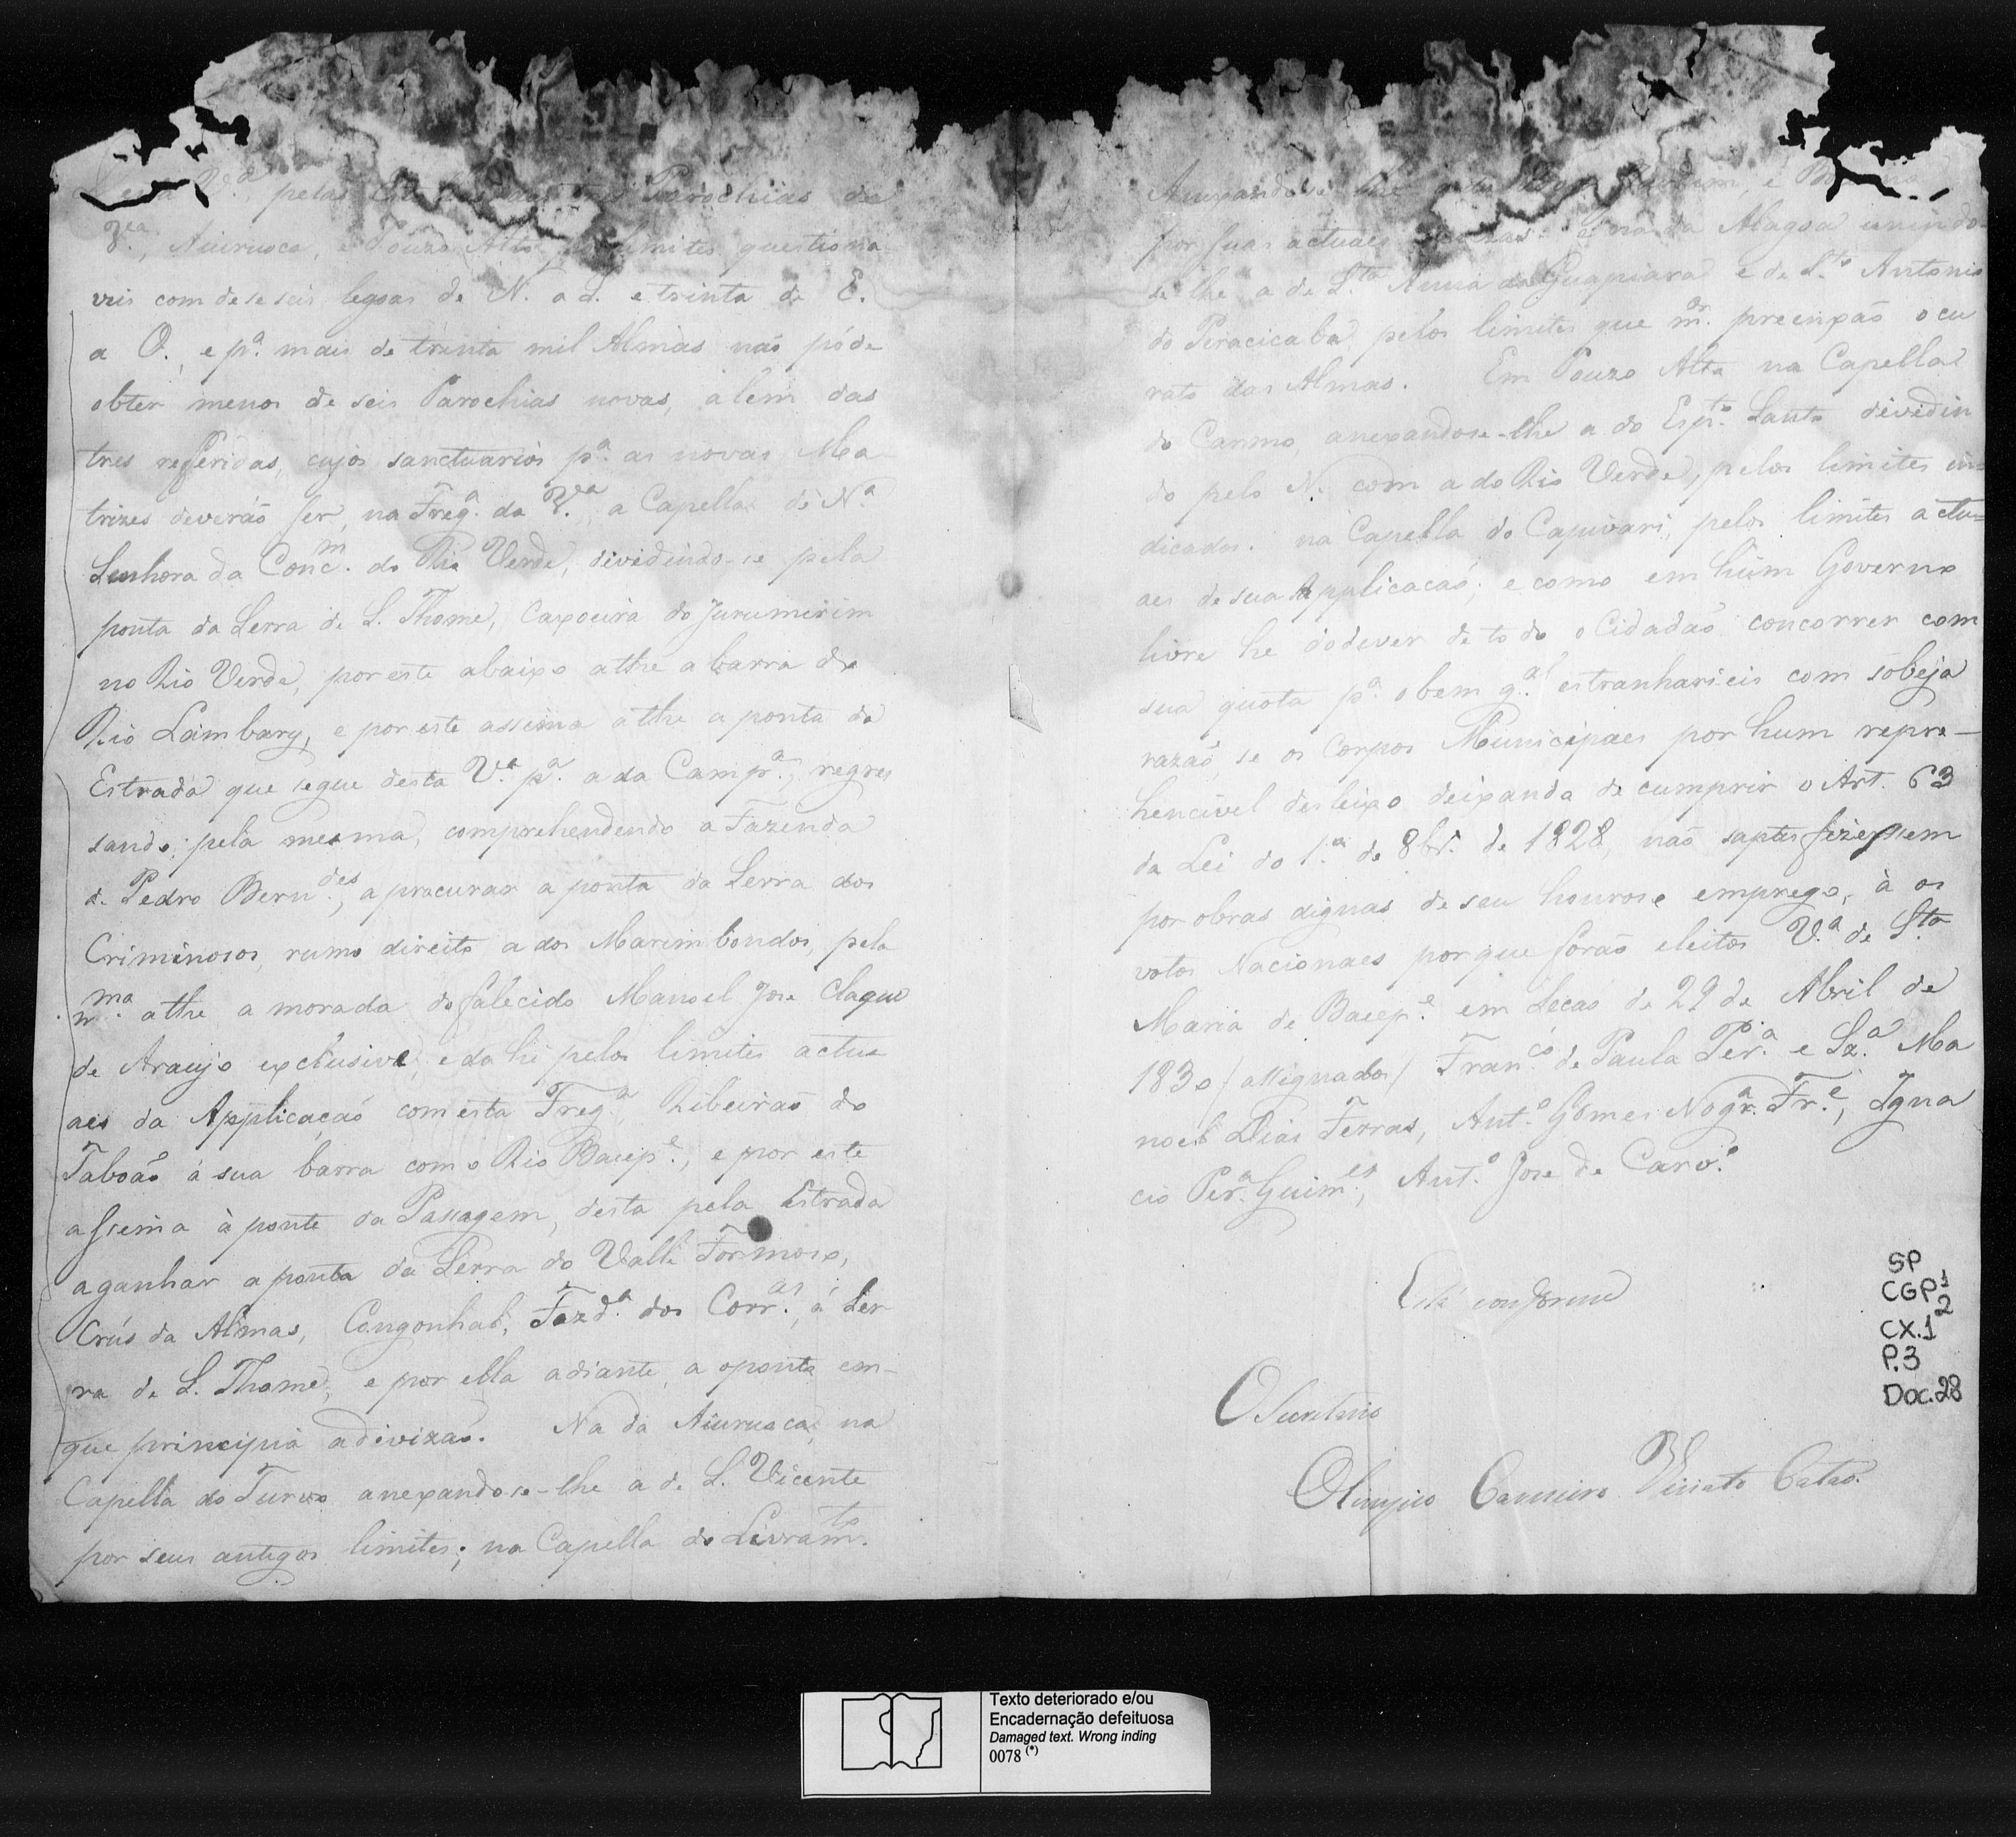 pelas Parochias da
V.ª, Aiuruoca, e Pouzo Alto limites questiona
veis com deseseis legoas de N. a S. e trinta de E.
a O., e p.ª mais de trinta mil Almas naõ póde
obter menos de seis Parochias novas, alem das
tres refferidas, cujos sanctuarios p.ª as novas Ma
trizes deveráõ ser, na Freg.ª da V.ª, a Capella de N.ª
Senhora da Conc.m do Rio Verde, dividindo-se pela
ponta da Serra de S. Thome, Capoeira do Jurumirim
no Rio Verde, por este abaixo athe a barra do
Rio Lambary, e por este assima athe a ponta da
Estrada que segue desta V.ª p.ª a da Camp.ª, regres
sando pela mesma, comprehendendo a Fazenda
de Pedro Bern.des, a procurar a ponta da Serra dos
Criminosos, rumo direito a dos Marimbondos, pela
m.ma athe a morada do falecido Manoel Jose Claque
de Araujo exclusive, e dahi pelos limites actua
aes da Applicaçaõ com esta Freg.ª Ribeiraõ do
Taboaõ á sua barra com o Rio Baep.e, e por este
assima à ponte da Passagem, desta pela Estrada
a ganhar a ponta da Serra do Valle Formoso,
Crús da Almas, Congonhal, Fazd.ª dos Corr.as, á Ser
ra de S. Thome, e por ella adiante, a oponta em-
que principia a divizaõ. Na da Aiuruoca, na
Capella do Turvo anexando-se-lhe a de S. Vicente
por seus antigos limites; na Capella do Livram.to
Anexando-se lhe
por suas actuaes na da Alagoa unindo-
se lhe a de S.ta Anna da Guapiara e de S.to Antonio
do Piracicaba, pelos limites que m.or preenxaõ o cu
rato das Almas. Em Pouzo Alto na Capella
do Carmo anexandose-lhe a do Esp.to Santo dividin
do pelo N. com a do Rio Verde, pelos limites in=
dicados. na Capella do Capivari, pelos limites actu=
aes de sua Applicacaõ; e como em hum Governo
livre he do dever de todo o Cidadaõ concorrer com
sua quota p.ª o bem g.al estranharieis com sobeja
razaõ, se os Corpos Municipaes por hum repre-
hencivel desleixo deixando de cumprir o Art. 63
da Lei do 1.º de 8br.º de 1828, naõ saptesfizessem
por obras dignas de seu honroso emprego, à os
votos Nacionaes porque foraõ eleitos V.ª de S.ta
Maria de Baep.e em Secaõ de 29 de Abril de
1830 / assignados / Fran.co de Paula Per.ª e Sz.ª Ma
noel Dias Ferras, Ant.º Gomes Nogr.ª Fr.e, Igna
cio Per.ª Guim.es, Ant.º Jose de Carv.º
Está conforme
O Secretario
Olimpio Carneiro Viriato Cataõ.
SP
CGP 1
2
CX.1
P.3
Doc.28
Texto deteriorado e/ou
Encadernação defeituosa
Damaged text. Wrong inding
0078 (*)